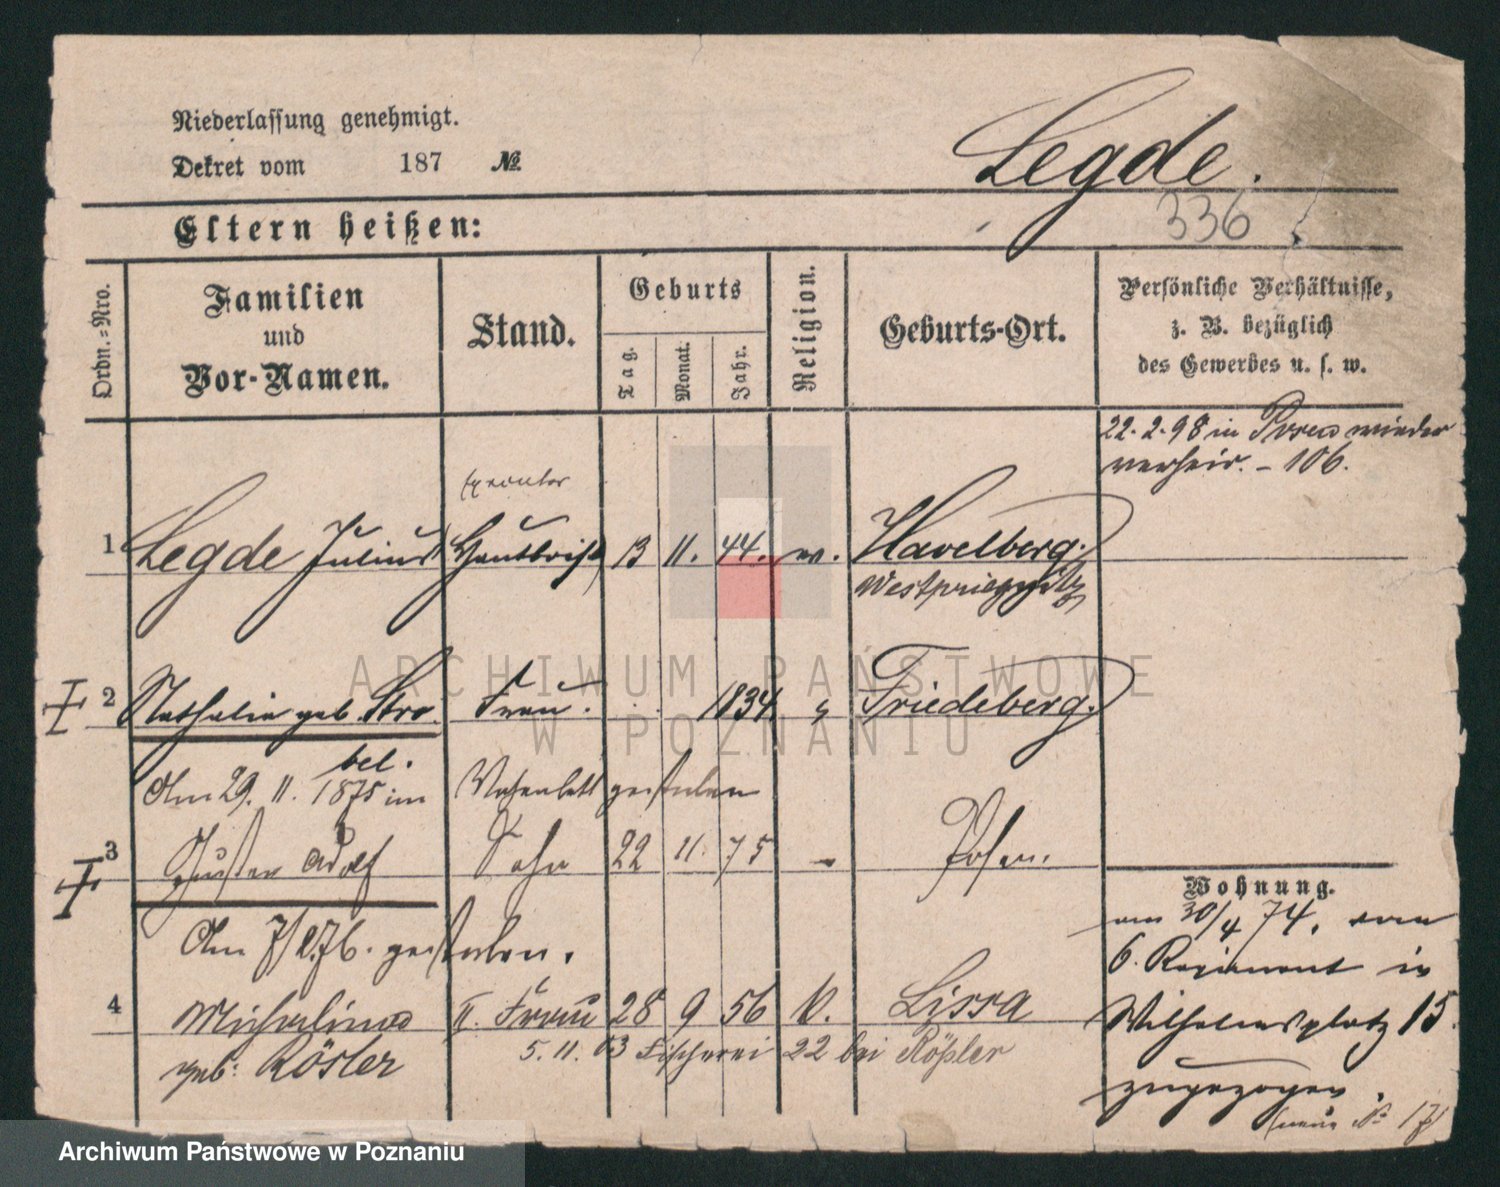 Niederlassung genehmigt.
Dekret vom 187 №
Legde.
336
Eltern heißen:
Ordn.-Nro.
Familien
und
Vor-Namen.
Stand.
Geburts
Tag.
Monat.
Jahr.
Religion.
Geburts-Ort.
Persönliche Verhältnisse,
z. B. bezüglich
des Gewerbes u. s. w.
22. 2. 98 in Posen wieder
verheir. - 106.
Executor
1 Legde Julius Hautboist 13 11. 44. ev. Havelberg.
Westpriegnitz
2 Nathalie geb. Stro Frau. 1834 Friedeberg.
bel.
Am 29. 11. 1875 im Wochenbett gestorben
3 Gustav Adolf Sohn 22 11. 75 - Posen.
Am gestorben.
4 Michalina II. Frau 28 9 56 k. Lissa
geb: Rösler
5. 11. 03 Fischerei 22 bei Rößler
Wohnung.
am 30/4 74. vom
6. Regiment in
Wilhelmsplatz 15.
zugezogen.
(neue № 17)
ARCHIWUM PAŃSTWOWE
W POZNANIU
Archiwum Państwowe w Poznaniu